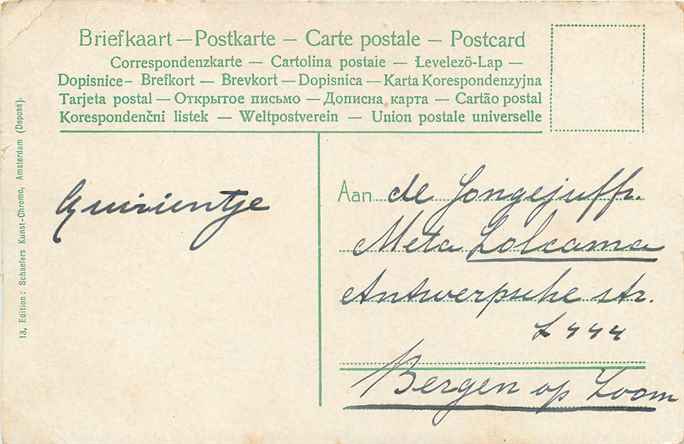 Briefkaart — Postkarte — Carte postale — Postcard
Correspondenzkarte — Cartolina postaie — Levelezö-Lap —
Dopisnice — Brefkort — Brevkort — Dopisnica — Karta Korespondenzyjna
Tarjeta postal — Открытое письмо — Дописна карта — Cartão postal
Korespondenčni listek — Weltpostverein — Union postale universelle
13, Edition: Schaefers Kunst-Chromo, Amsterdam (Deposs).
Quirientje
Aan de Jongejuffr.
Meta Lolcama
Antwerpsche str.
L 444
Bergen op Zoom